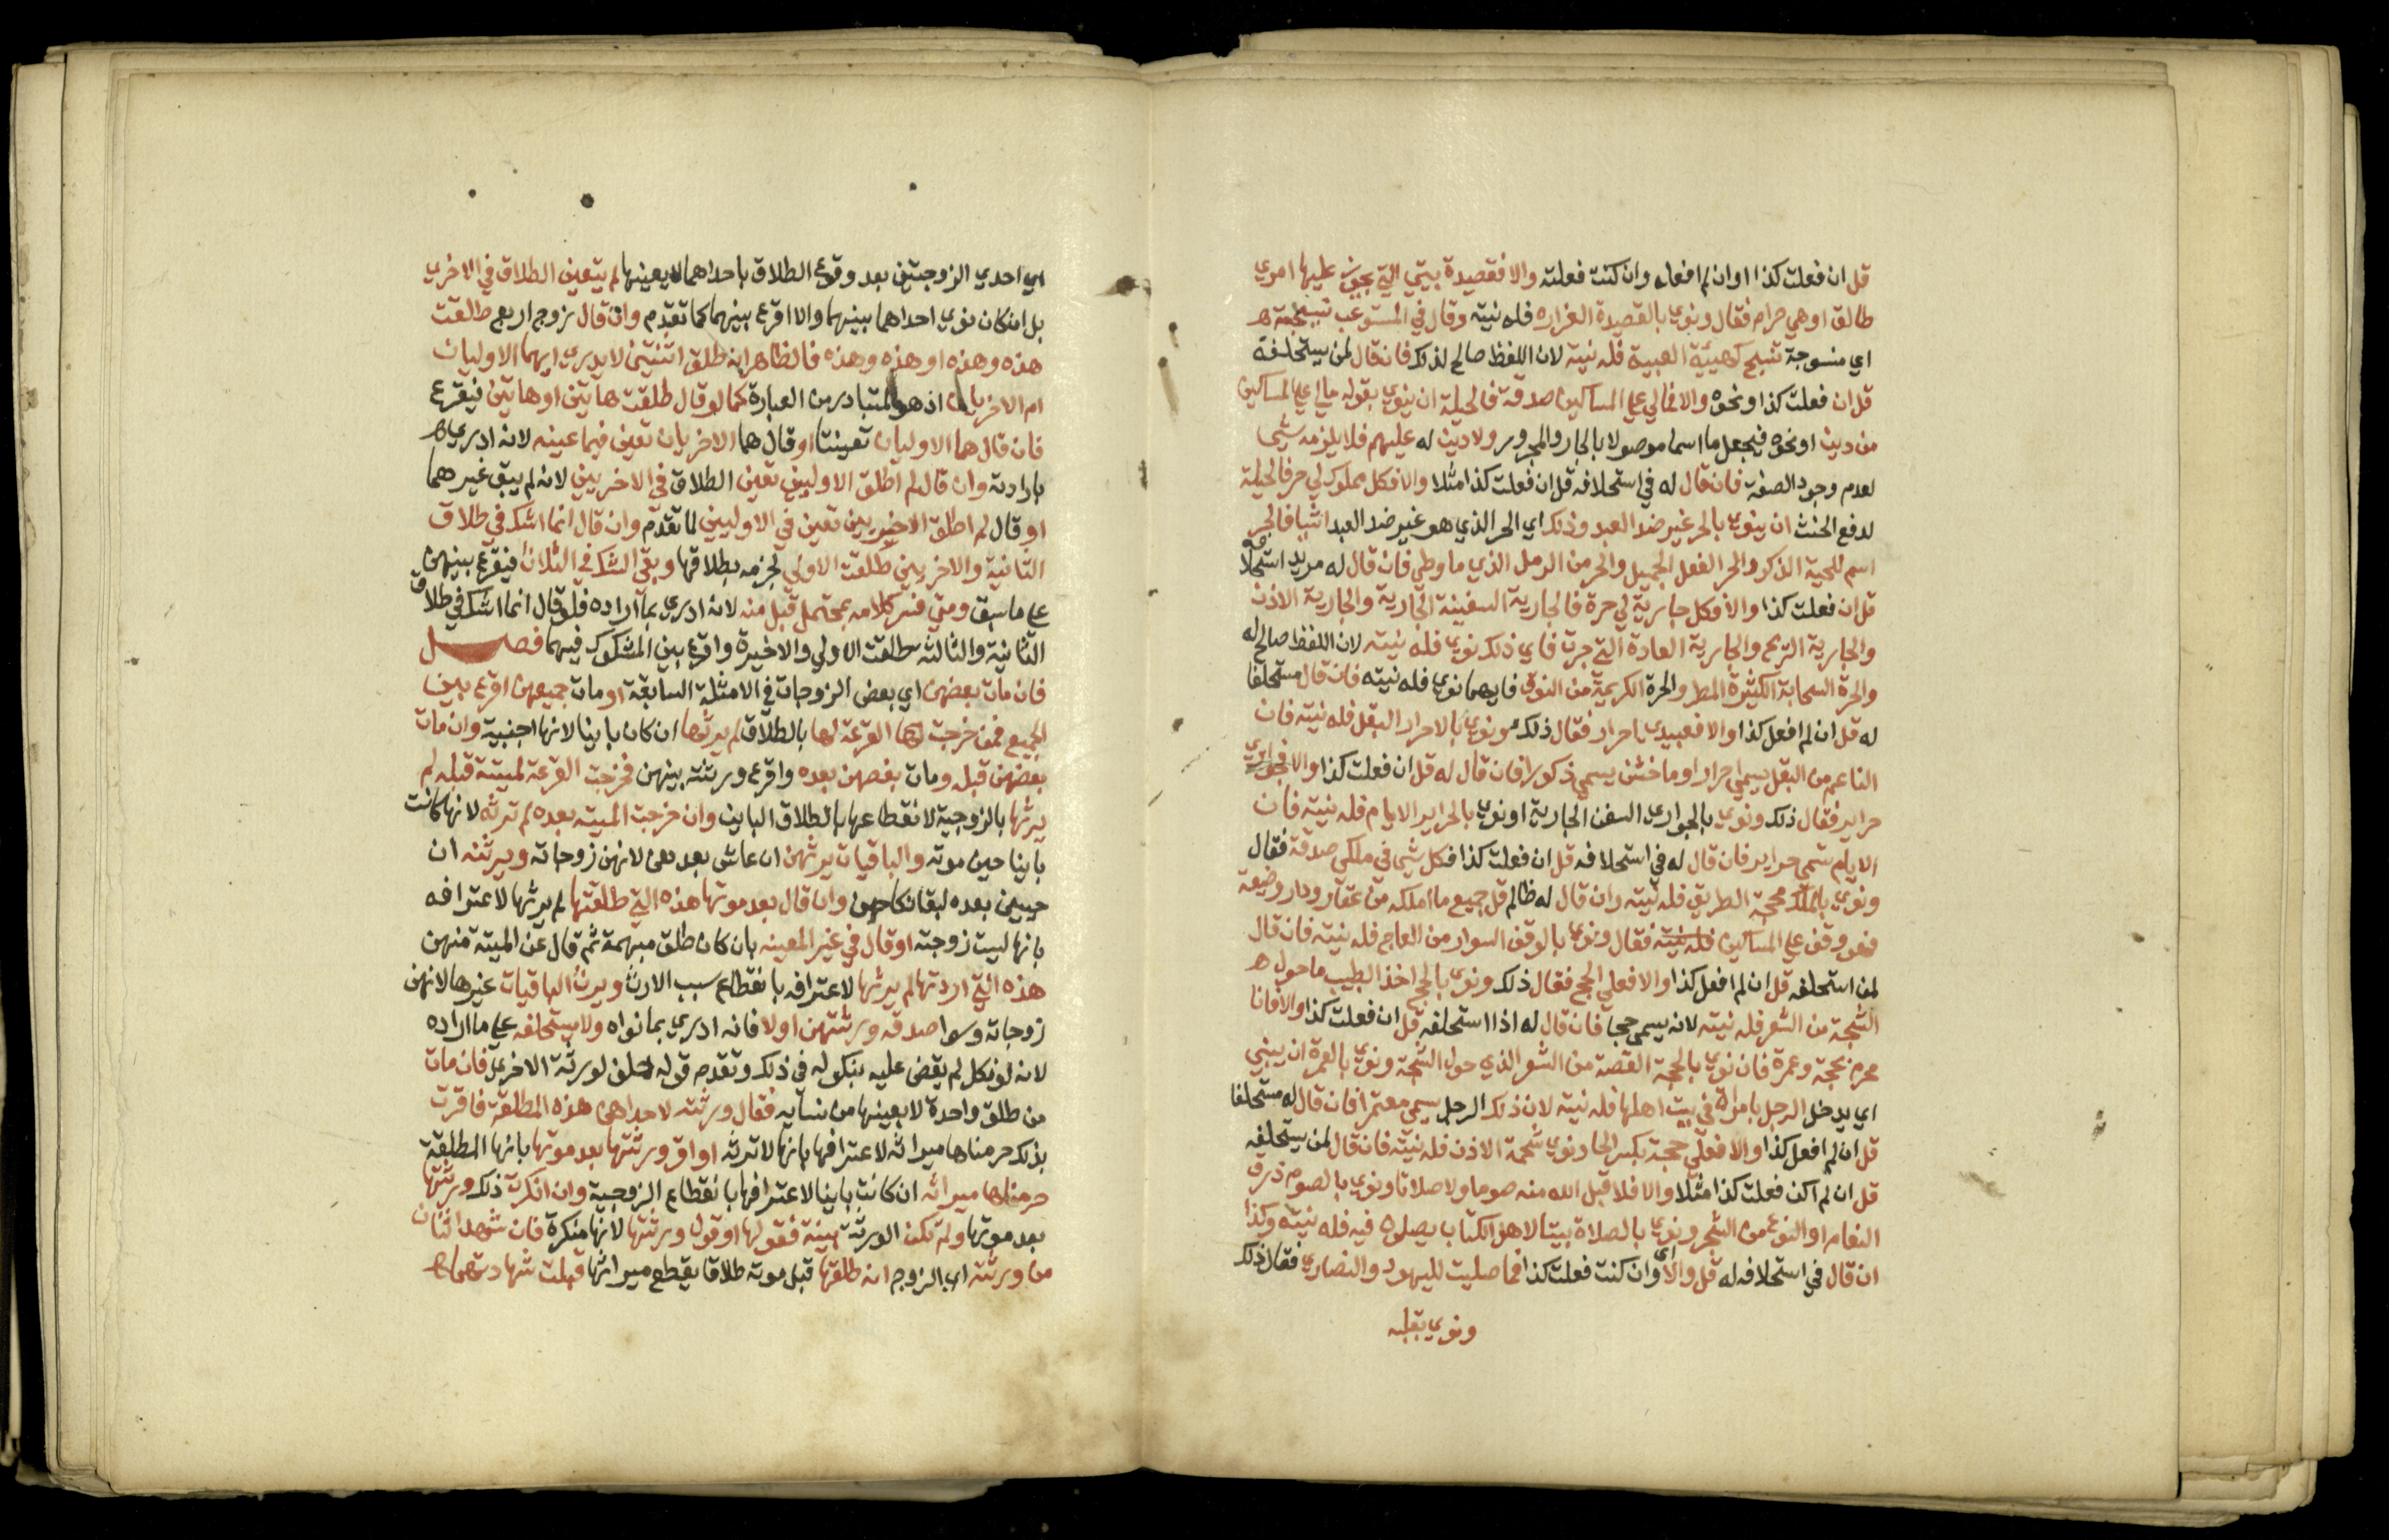 قل ان فعلت كذا او ان لم افعله وان كنت فعلته والا فقصيدة بيتي التي يجوز عليها امري
طالق او هي حرام فقال ونوي بالقصيدة الغراره فله نيته وقال في المستوعب نسيجة
اي منسوجة تنسج كهيئة العبية فله نيته لان اللفظ صالح لذلك فان قال لمن يستحلفه
قل ان فعلت كذا ونحوه والا فمالي على المساكين صدقة فالحيلة ان ينوي بقوله مالي على المساكين
من دين او نحوه فيجعل ما اسما موصولا بالجار والمجرور ولا دين له عليهم فلا يلزمه شي
لعدم وجود الصفة فان قال له في استحلافه قل ان فعلت كذا مثلا والا فكل مملوك لي حر فالحيلة
لدفع الحنث ان ينوي بالحر غير ضد العبد وذلك اي الحر الذي هو غير ضد العبد اشيا فالحر
اسم للحية الذكر والحر الفعل الجميل والحر من الرمل الذي ما وطي فان قال له مريد استحلافه
قل ان فعلت كذا والا فكل جارية لي حرة فالجارية السفينة الجارية والجارية الاذن
والجارية الريح والجارية العادة التي جرت فاي ذلك نوي فله نيته لان اللفظ صالح له
والحرة السحابة الكثيرة المطر والحرة الكريمة من النوق فايهما نوي فله نيته فان قال مستحلفا
له قل ان لم افعل كذا والا فعبيدي احرار فقال ذلك ونوي بالاحرار البقل فله نيته فان
الناعم من البقل يسمي احرارا وما خشن يسمي ذكورا فان قال له قل ان فعلت كذا والا فجواري
حراير فقال ذلك ونوي بالجواري السفن الجارية او نوي بالحراير الايام فله نيته فان
الايام تسمي حراير فان قال له في استحلافه قل ان فعلت كذا فكل شي في ملكي صدقة فقال
ونوي بالملك محجة الطريق فله نيته وان قال له ظالم قل جميع ما املكه من عقار ودار وضيعة
فهو وقف على المساكين فله نيته فقال ونوي بالوقف السوار من العاج فله نيته فان قال
لمن استحلفه قل ان لم افعل كذا والا فعلي الحج فقال ذلك ونوي بالحج اخذ الطبيب ما حول
الشجة من الشعر فله نيته لانه يسمي حجا فان قال له اذا استحلفه قل ان فعلت كذا والا فانا
محرم بحجة وعمرة فان نوي بالحجة القصة من الشعر الذي حول الشجة ونوي بالعمرة ان يبني
اي يدخل الرجل بامراة في بيت اهلها فله نيته لان ذلك الرجل يسمي معتمرا فان قال له مستحلفا
قل ان لم افعل كذا والا فعلي حجة بكسر الحا ونوي شحمة الاذن فله نيته فان قال لمن يستحلفه
قل ان لم اكن فعلت كذا مثلا والا فلا قبل الله منه صوما ولا صلاتا ونوي بالصوم ذرق
النعام او النوع من الشجر ونوي بالصلاة بيتا لاهل الكتاب يصلون فيه فله نيته وكذا
ان قال في استحلافه له قل والا اي وان كنت فعلت كذا فما صليت لليهود والنصاري فقال ذلك
ونوي بقلبه
اي احدي الزوجتين بعد وقوع الطلاق باحداهما لا بعينها لم يتعين الطلاق في الاخري
بل ان كان نوي احداهما بينهما والا اقرع بينهما كما تقدم وان قال زوج اربع طالقت
هذه وهذه او هذه وهذه فالظاهر انه طلق اثنتين لا يدري ايهما الاوليان
ام الاخريان اذ هو المتبادر من العبارة كما لو قال طلقت هاتين او هاتين فيقرع
فان قال هما الاوليان تعينتا او قال هما الاخريان تعين فيما عينه لانه ادري
بارادته وان قال لم اطلق الاوليين تعين الطلاق في الاخريين لانه لم يبق غيرهما
او قال لم اطلق الاخريين تعين في الاوليين لما تقدم وان قال انما اشك في طلاق
الثانية والاخريين طلقت الاولي لجزمه بطلاقها وبقي الشك في الثلاث فيقرع بينهن
على ما سبق ومتي فسر كلامه بمحتمل قبل منه لانه ادري بما اراده فلو قال انما اشك في طلاق
الثانية والثالثة طلقت الاولي والاخيرة واقرع بين المشكوك فيهما فصل
فان مات بعضهن اي بعض الزوجات في الامثلة السابقة او مات جميعهن اقرع بين
الجميع فمن خرجت لها القرعة لها بالطلاق لم يرثها ان كان باينا لانها اجنبية وان مات
بعضهن قبله ومات بعضهن بعده واقرع ورثته بينهن فخرجت القرعة لميتة قبله لم
يرثها بالزوجية لانقطاعها بالطلاق الباين وان خرجت الميتة بعده لم ترثه لانها كانت
باينا حين موته والباقيات يرثهن ان عاش بعدهن لانهن زوجاته ويرثنه ان
حيين بعده لبقا نكاحهن وان قال بعد موتها هذه التي طلقتها لم يرثها لاعترافه
بانها ليست زوجته او قال في غير المعينه بان كان طلق مبهمة ثم قال عن الميتة منهن
هذه التي اردتها لم يرثها لاعترافه بانقطاع سبب الارث ويرث الباقيات غيرها لانهن
زوجاته وسوا صدقه ورثتهن اولا فانه ادري بما نواه ولا يستحلفه على ما اراده
لانه لو نكل لم يقض عليه بنكوله في ذلك وتقدم قوله يحلف لورثة الاخري فان مات
من طلق واحدة لا بعينها من نسايه فقال ورثته لاحداهن هذه المطلقة فاقرت
بذلك حرمناها ميراثه لاعترافها بانها لا ترثه او اقر ورثتها بعد موتها بانها المطلقة
حرمناها ميراثه ان كانت باينا لاعترافها بانقطاع الزوجية وان انكرت ذلك ورثتها
بعد موتها ولم تكن الورثة بينة فقولها او قول ورثتها لانها منكرة فان شهد اثنان
من ورثته اي الزوج انه طلقها قبل موته طلاقا يقطع ميراثها قبلت شهادتهما